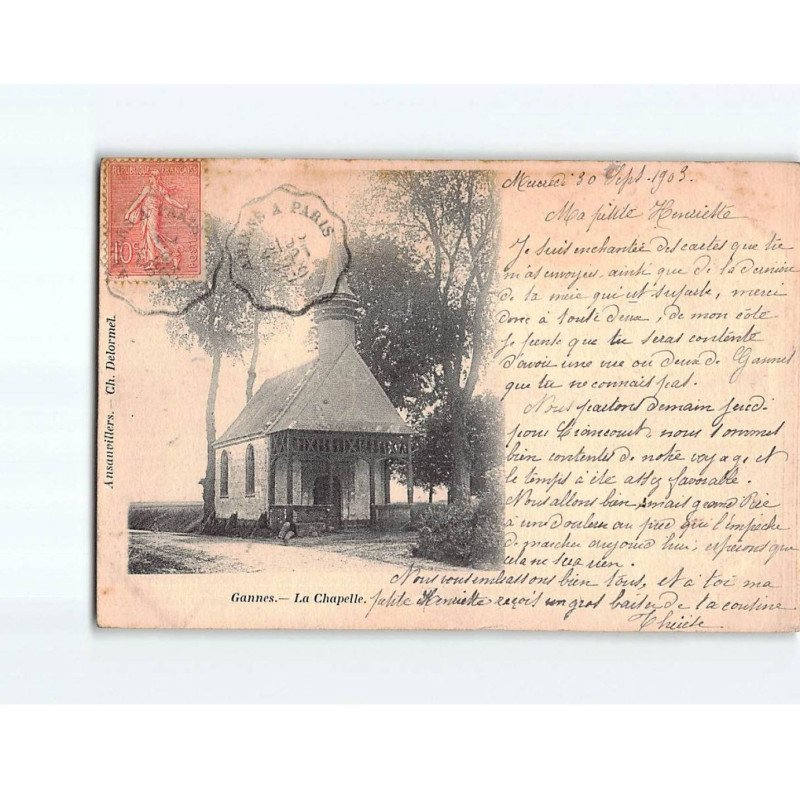 REPUBLIQUE FRANÇAISE
10c
A PARIS
Ansauvillers. Ch. Delormel.
Mercredi 30 Sept. 1903.
Ma petite Henriette
Je suis enchantée des cartes que tu
m'as envoyés ainsi que de la dernière
de ta mère qui est superbe, merci
donc à toute deux, de mon côté
je pense que tu seras contente
d'avoir une vue ou deux de Gannes
que tu ne connais pas.
Nous partons demain jeudi
pour Liancourt, nous sommes
bien contentes de notre voyage et
le temps à été assez favorable.
Nous allons bien, mais grand Père
à une douleur au pied qui l'empêche
de marcher aujourd'hui, espérons que
cela ne sera rien.
Nous vous embrassons bien tous, et à toi ma
petite Henriette reçois un gros baiser de ta cousine
Thérèse
Gannes.— La Chapelle.